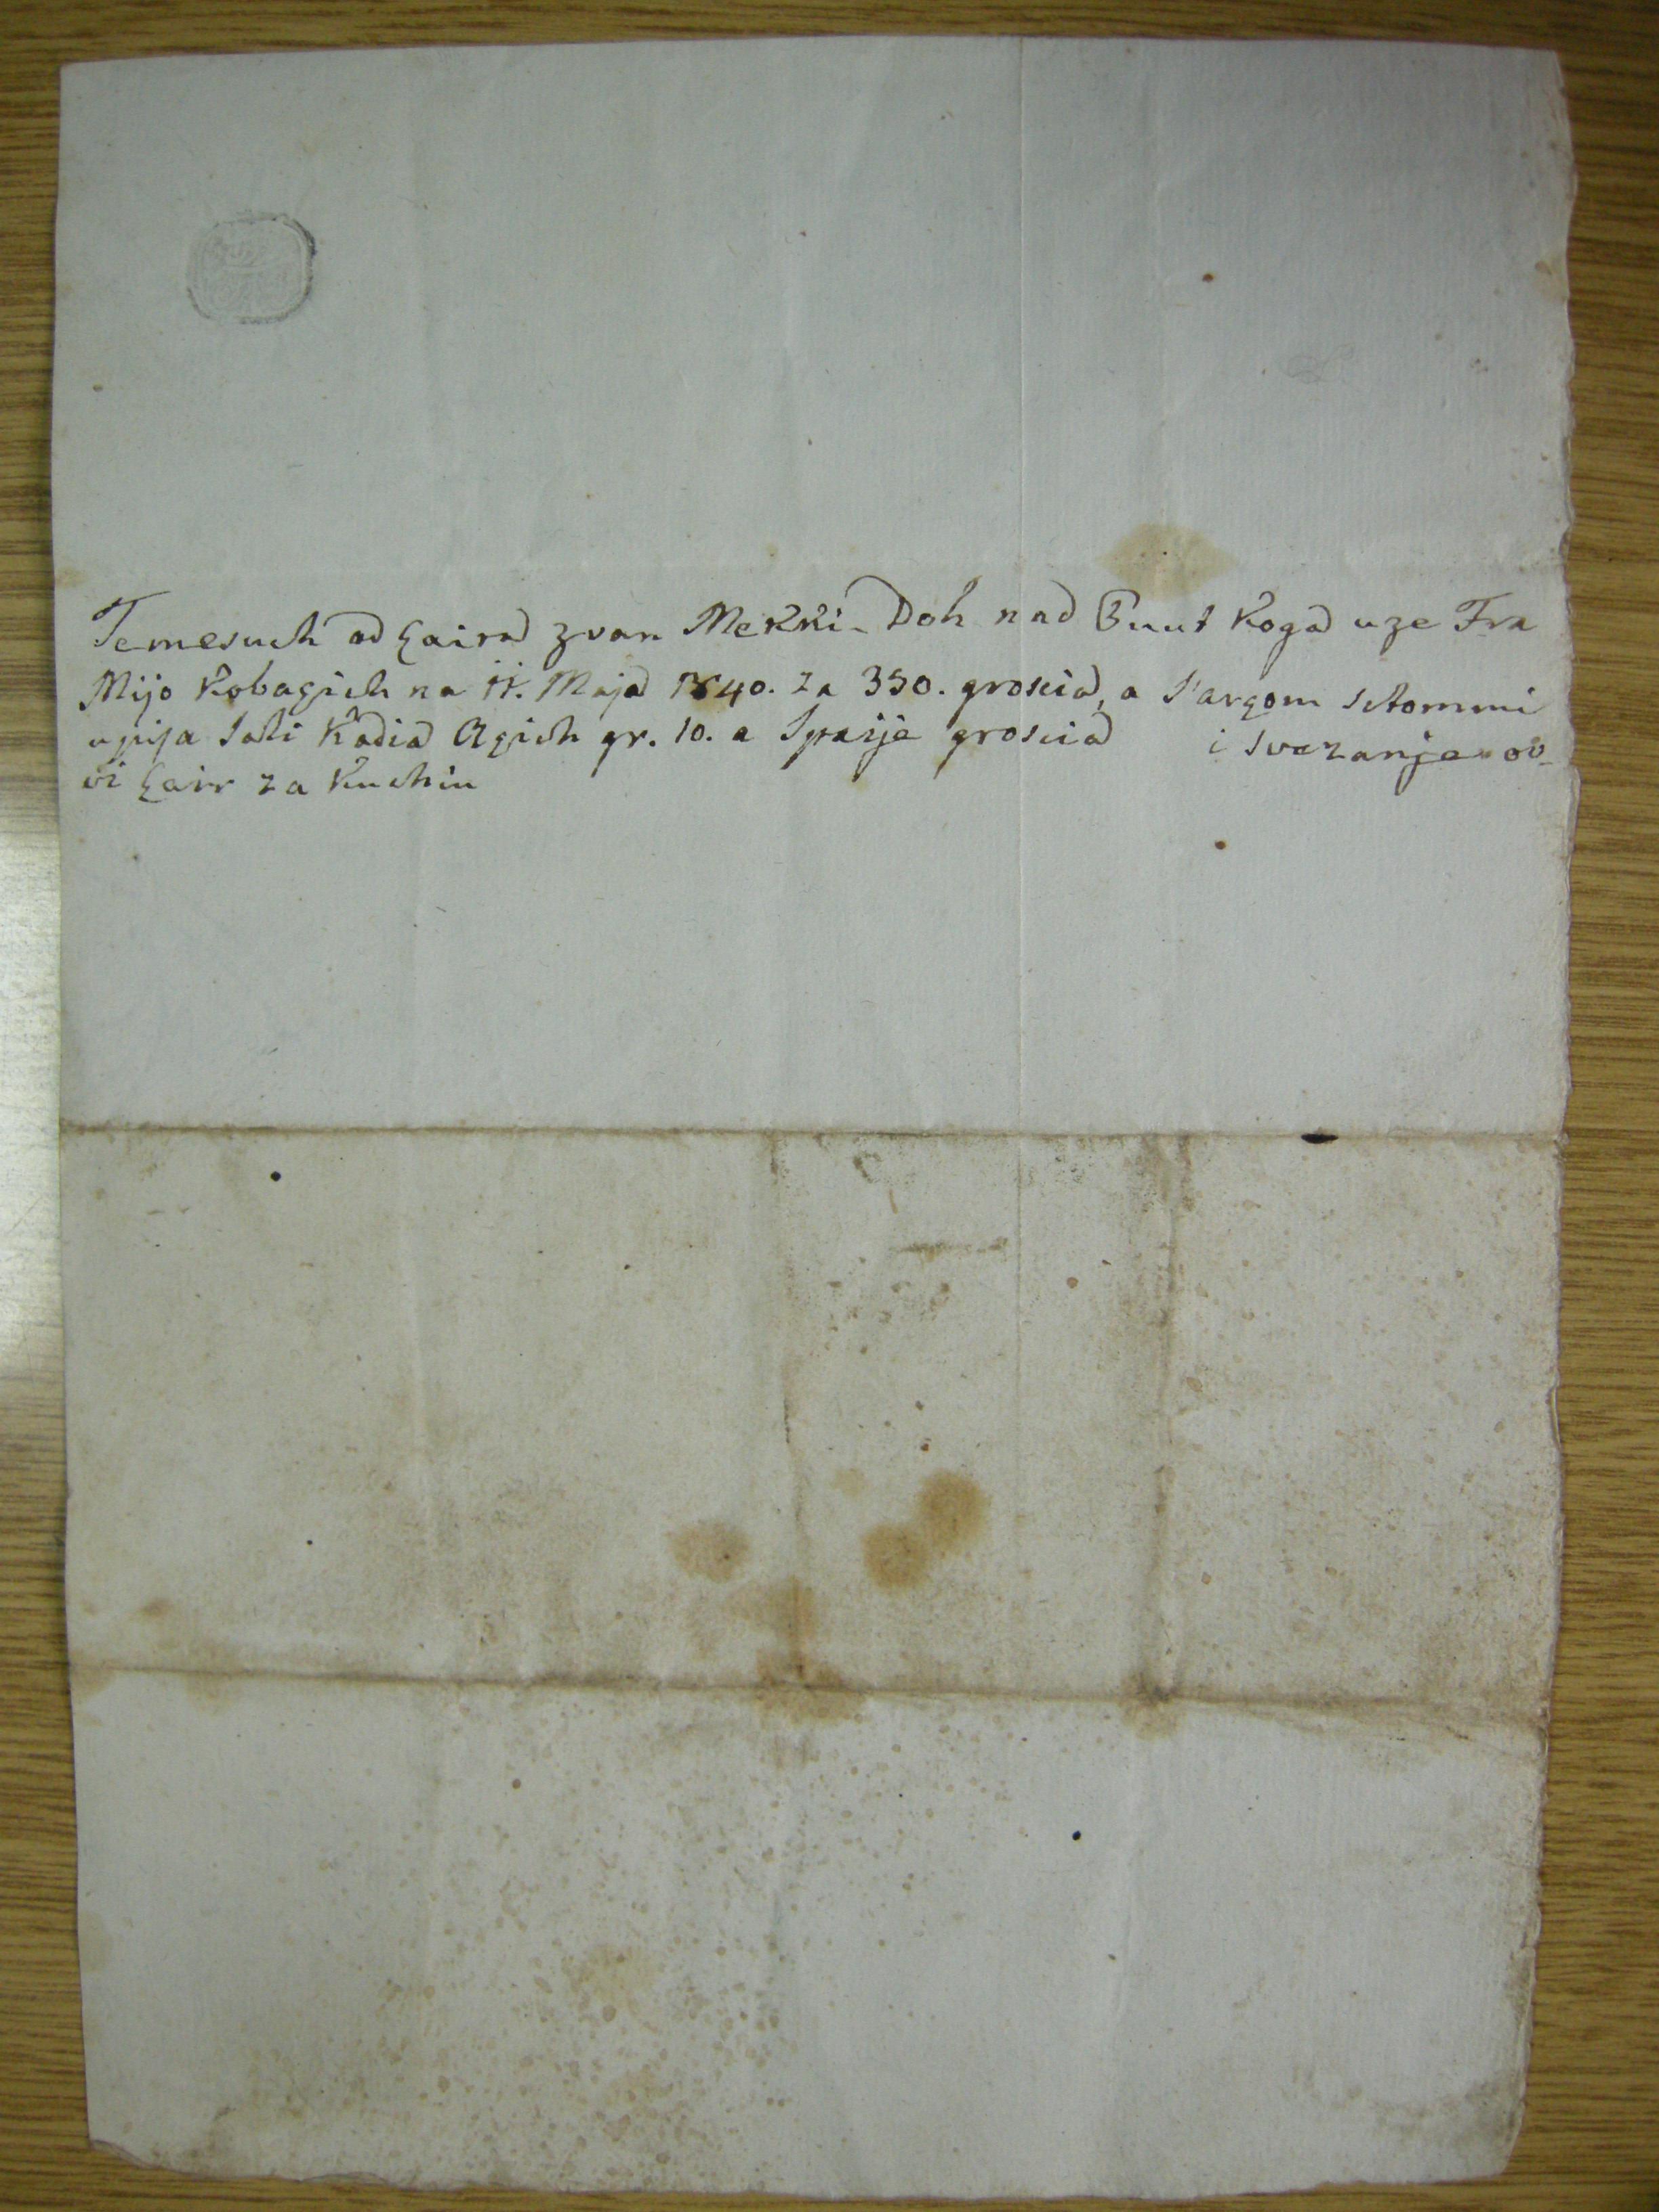 Temesuch od Cairа zvan Mekki-Doh nad Puut koga uze Fra
Mijo Kobagich na 11. Maja 1840. za 350. groscia, a
upija Sali Kadia Agich gr. 10. a Spaija groscia i svezanje ov-
vi Cair za Kuchiu